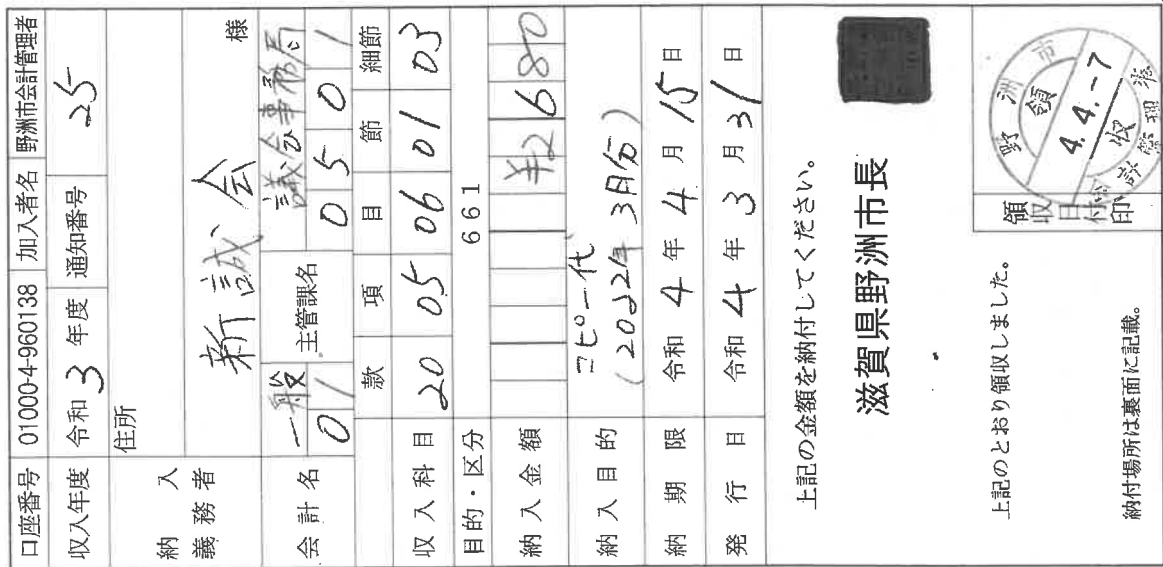 口座番号 01000-4-960138 加入者名 野洲市会計管理者
収入年度 令和 3 年度 通知番号 25
納入義務者 住所
新誠会 様
会計名 一般 01 主管課名 議会事務局 0 5 0 1
款 項 目 節 細節
収入科目 20 05 06 01 03
目的・区分 661
納入金額 ¥2680
納入目的 コピー代
(2022年3月分)
納期限 令和 4 年 4 月 15 日
発行日 令和 4 年 3 月 31 日
上記の金額を納付してください。
滋賀県野洲市長
上記のとおり領収しました。
領収日付印
野洲市
領
4.4.-7
収
会計管理者
納付場所は裏面に記載。